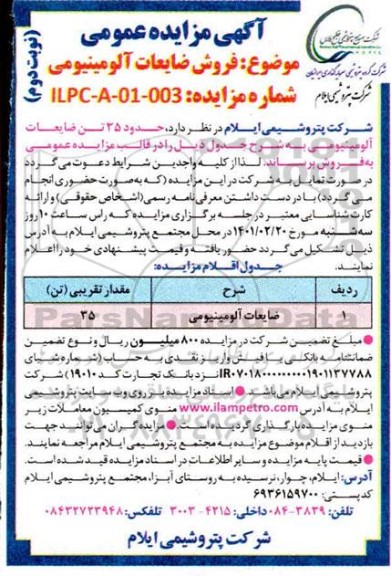 آگهی مزایده عمومی
(نوبت دوم)
موضوع: فروش ضایعات آلومینیومی
شماره مزایده: ILPC-A-01-003
شرکت پتروشیمی ایلام
شرکت پتروشیمی ایلام در نظر دارد، حدود ۳۵ تن ضایعات
آلومینیومی را به شرح جدول ذیل را در قالب مزایده عمومی
به فروش برساند. لذا از کلیه واجدین شرایط دعوت می گردد
در صورت تمایل به شرکت در این مزایده (که به صورت حضوری انجام
می گردد) با در دست داشتن معرفی نامه رسمی (اشخاص حقوقی) و ارائه
کارت شناسایی معتبر در جلسه برگزاری مزایده که راس ساعت ۱۰ روز
سه شنبه مورخ ۱۴۰۱/۰۲/۲۰ در محل مجتمع پتروشیمی ایلام به آدرس
ذیل تشکیل می گردد حضور یافته و قیمت پیشنهادی خود را اعلام
نمایند.
جدول اقلام مزایده:
ردیف شرح مقدار تقریبی (تن)
۱ ضایعات آلومینیومی ۳۵
• مبلغ تضمین شرکت در مزایده ۸۰۰ میلیون ریال و نوع تضمین
ضمانتنامه بانکی یا فیش واریز نقدی به حساب (شماره شبای
نزد بانک تجارت کد ۱۹۰۱۰) شرکت
پتروشیمی ایلام می باشد. • اسناد مزایده بر روی وب سایت پتروشیمی
ایلام به آدرس www.ilampetro.com منوی کمیسیون معاملات زیر
منوی مزایده بارگذاری گردیده است. • مزایده گران می توانند جهت
بازدید از اقلام موضوع مزایده به مجتمع پتروشیمی ایلام مراجعه نمایند.
• قیمت پایه مزایده و سایر اطلاعات در اسناد مزایده قید شده است.
آدرس: ایلام، چوار، نرسیده به روستای آبزا، مجتمع پتروشیمی ایلام
کدپستی: ۶۹۳۶۱۵۹۷۰۰
تلفن: ۳۸۳۹-۰۸۴ داخلی: ۴۲۱۵ - ۳۰۰۳ تلفکس: ۰۸۴۳۲۷۲۳۹۴۸
شرکت پتروشیمی ایلام